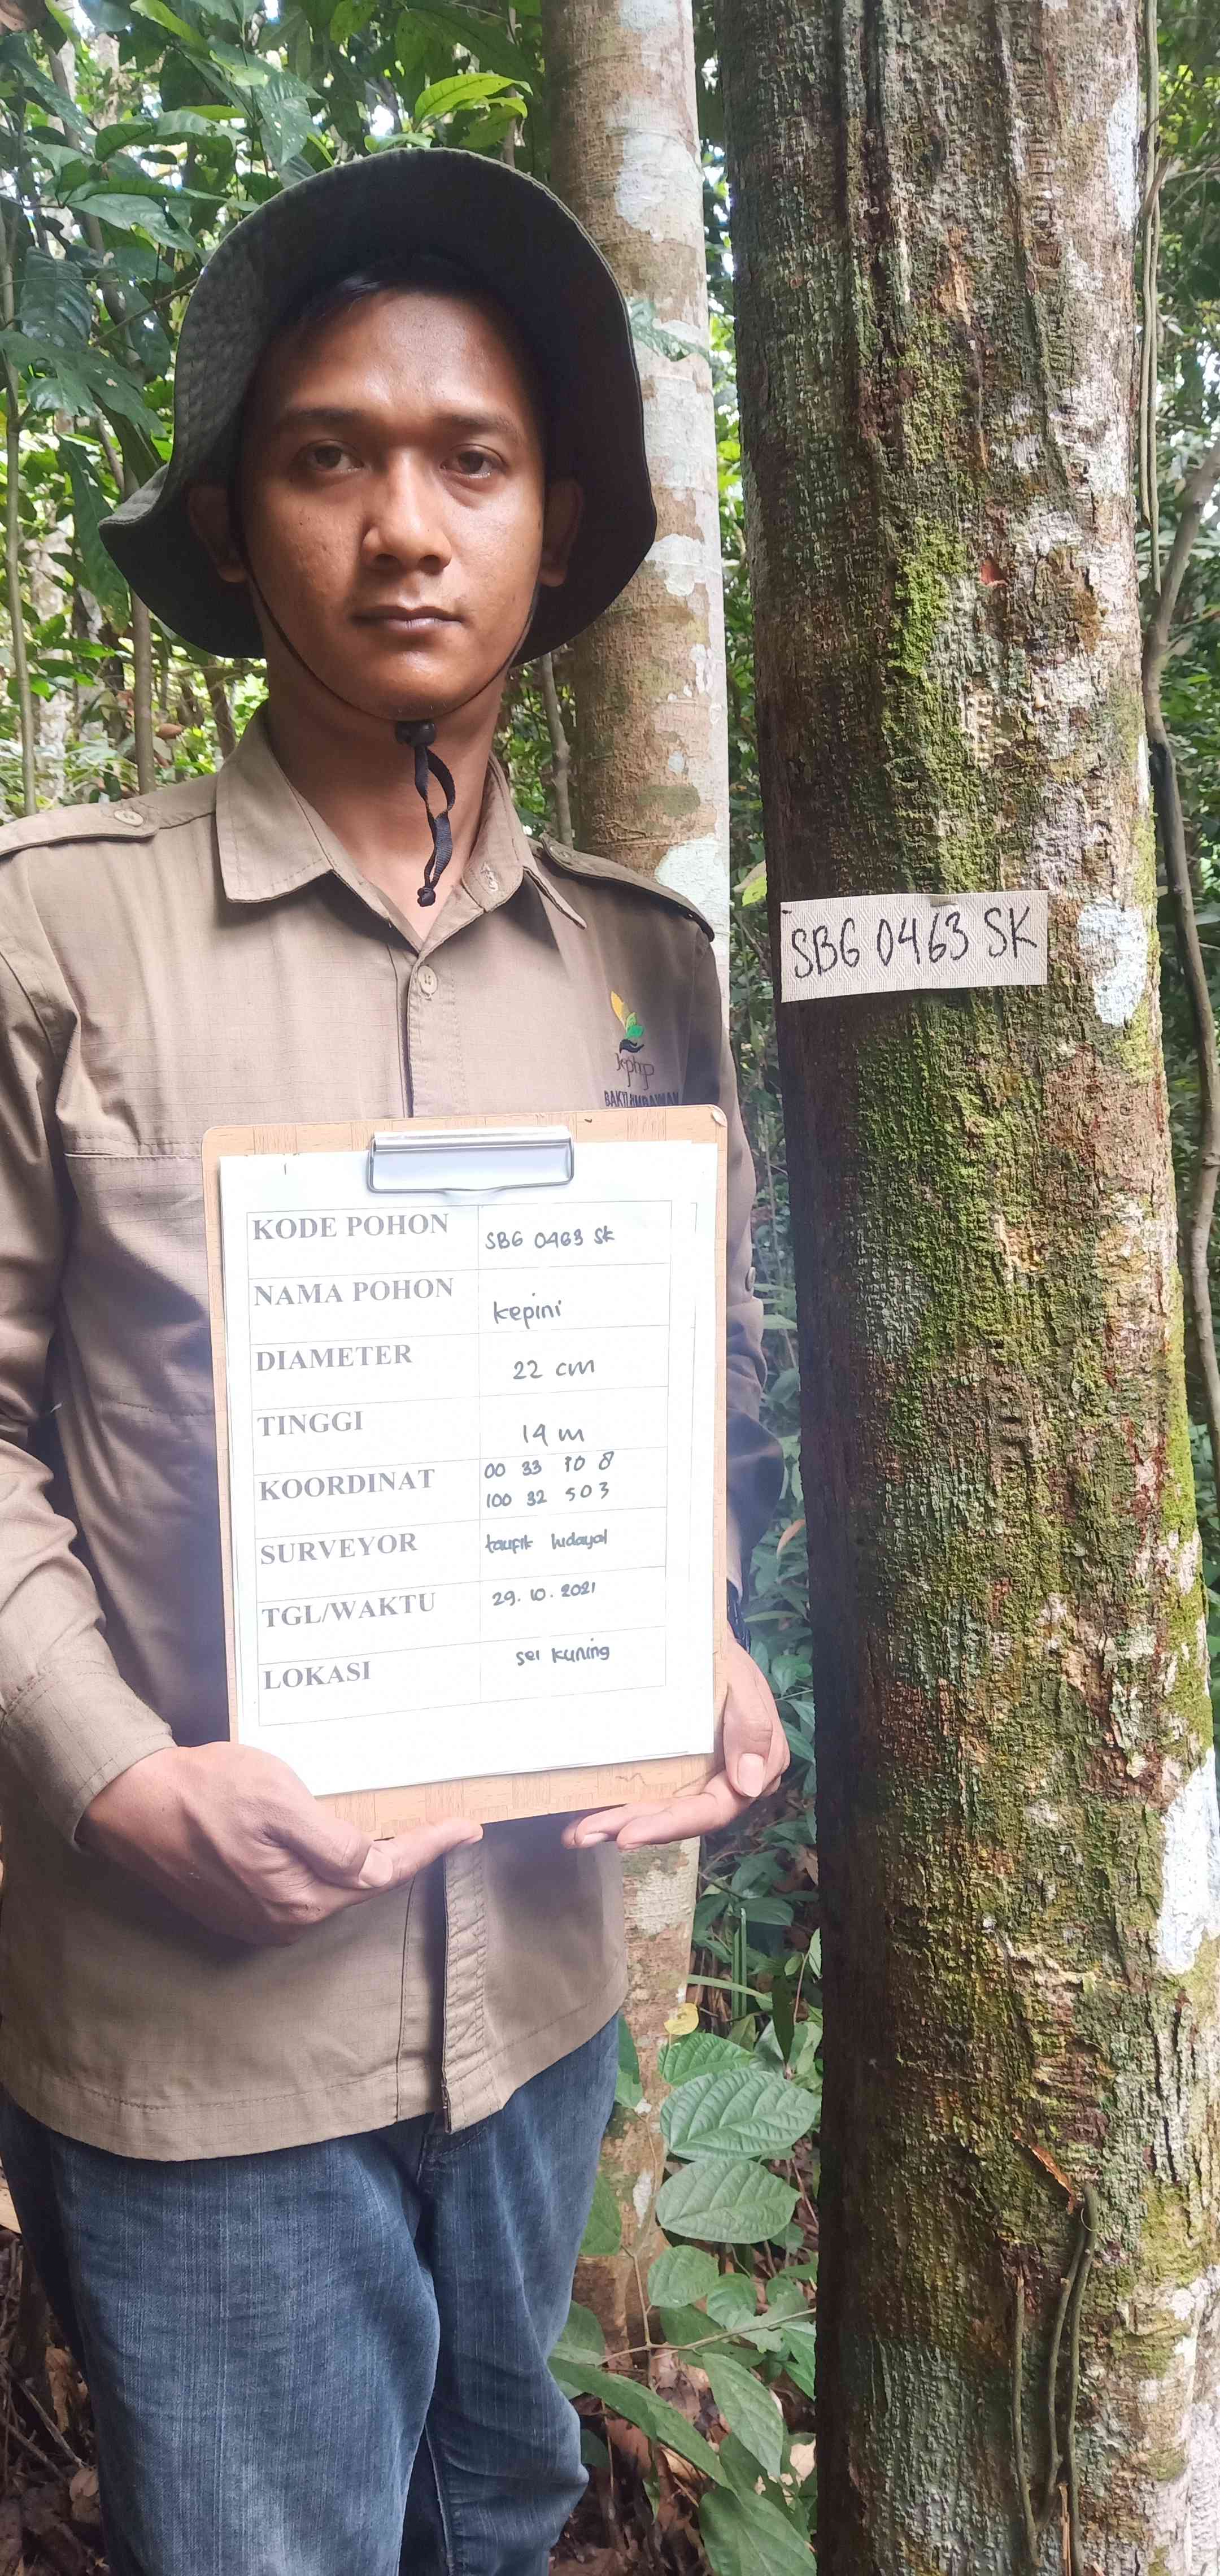 SBG 0463 SK
kphp
KODE POHON SBG 0463 SK
NAMA POHON kepini
DIAMETER 22 cm
TINGGI 14 m
KOORDINAT 00 33 10 8
100 32 503
SURVEYOR taufik hidayat
TGL/WAKTU 29.10.2021
LOKASI sei kuning